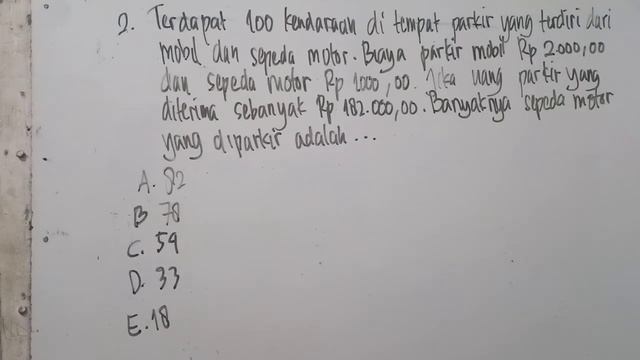 2. Terdapat 100 kendaraan di tempat parkir yang terdiri dari
mobil dan sepeda motor. Biaya parkir mobil Rp 2.000,00
dan sepeda motor Rp 1.000,00. Jika uang parkir yang
diterima sebanyak Rp 182.000,00. Banyaknya sepeda motor
yang diparkir adalah ...
A. 82
B 78
C. 59
D. 33
E. 18